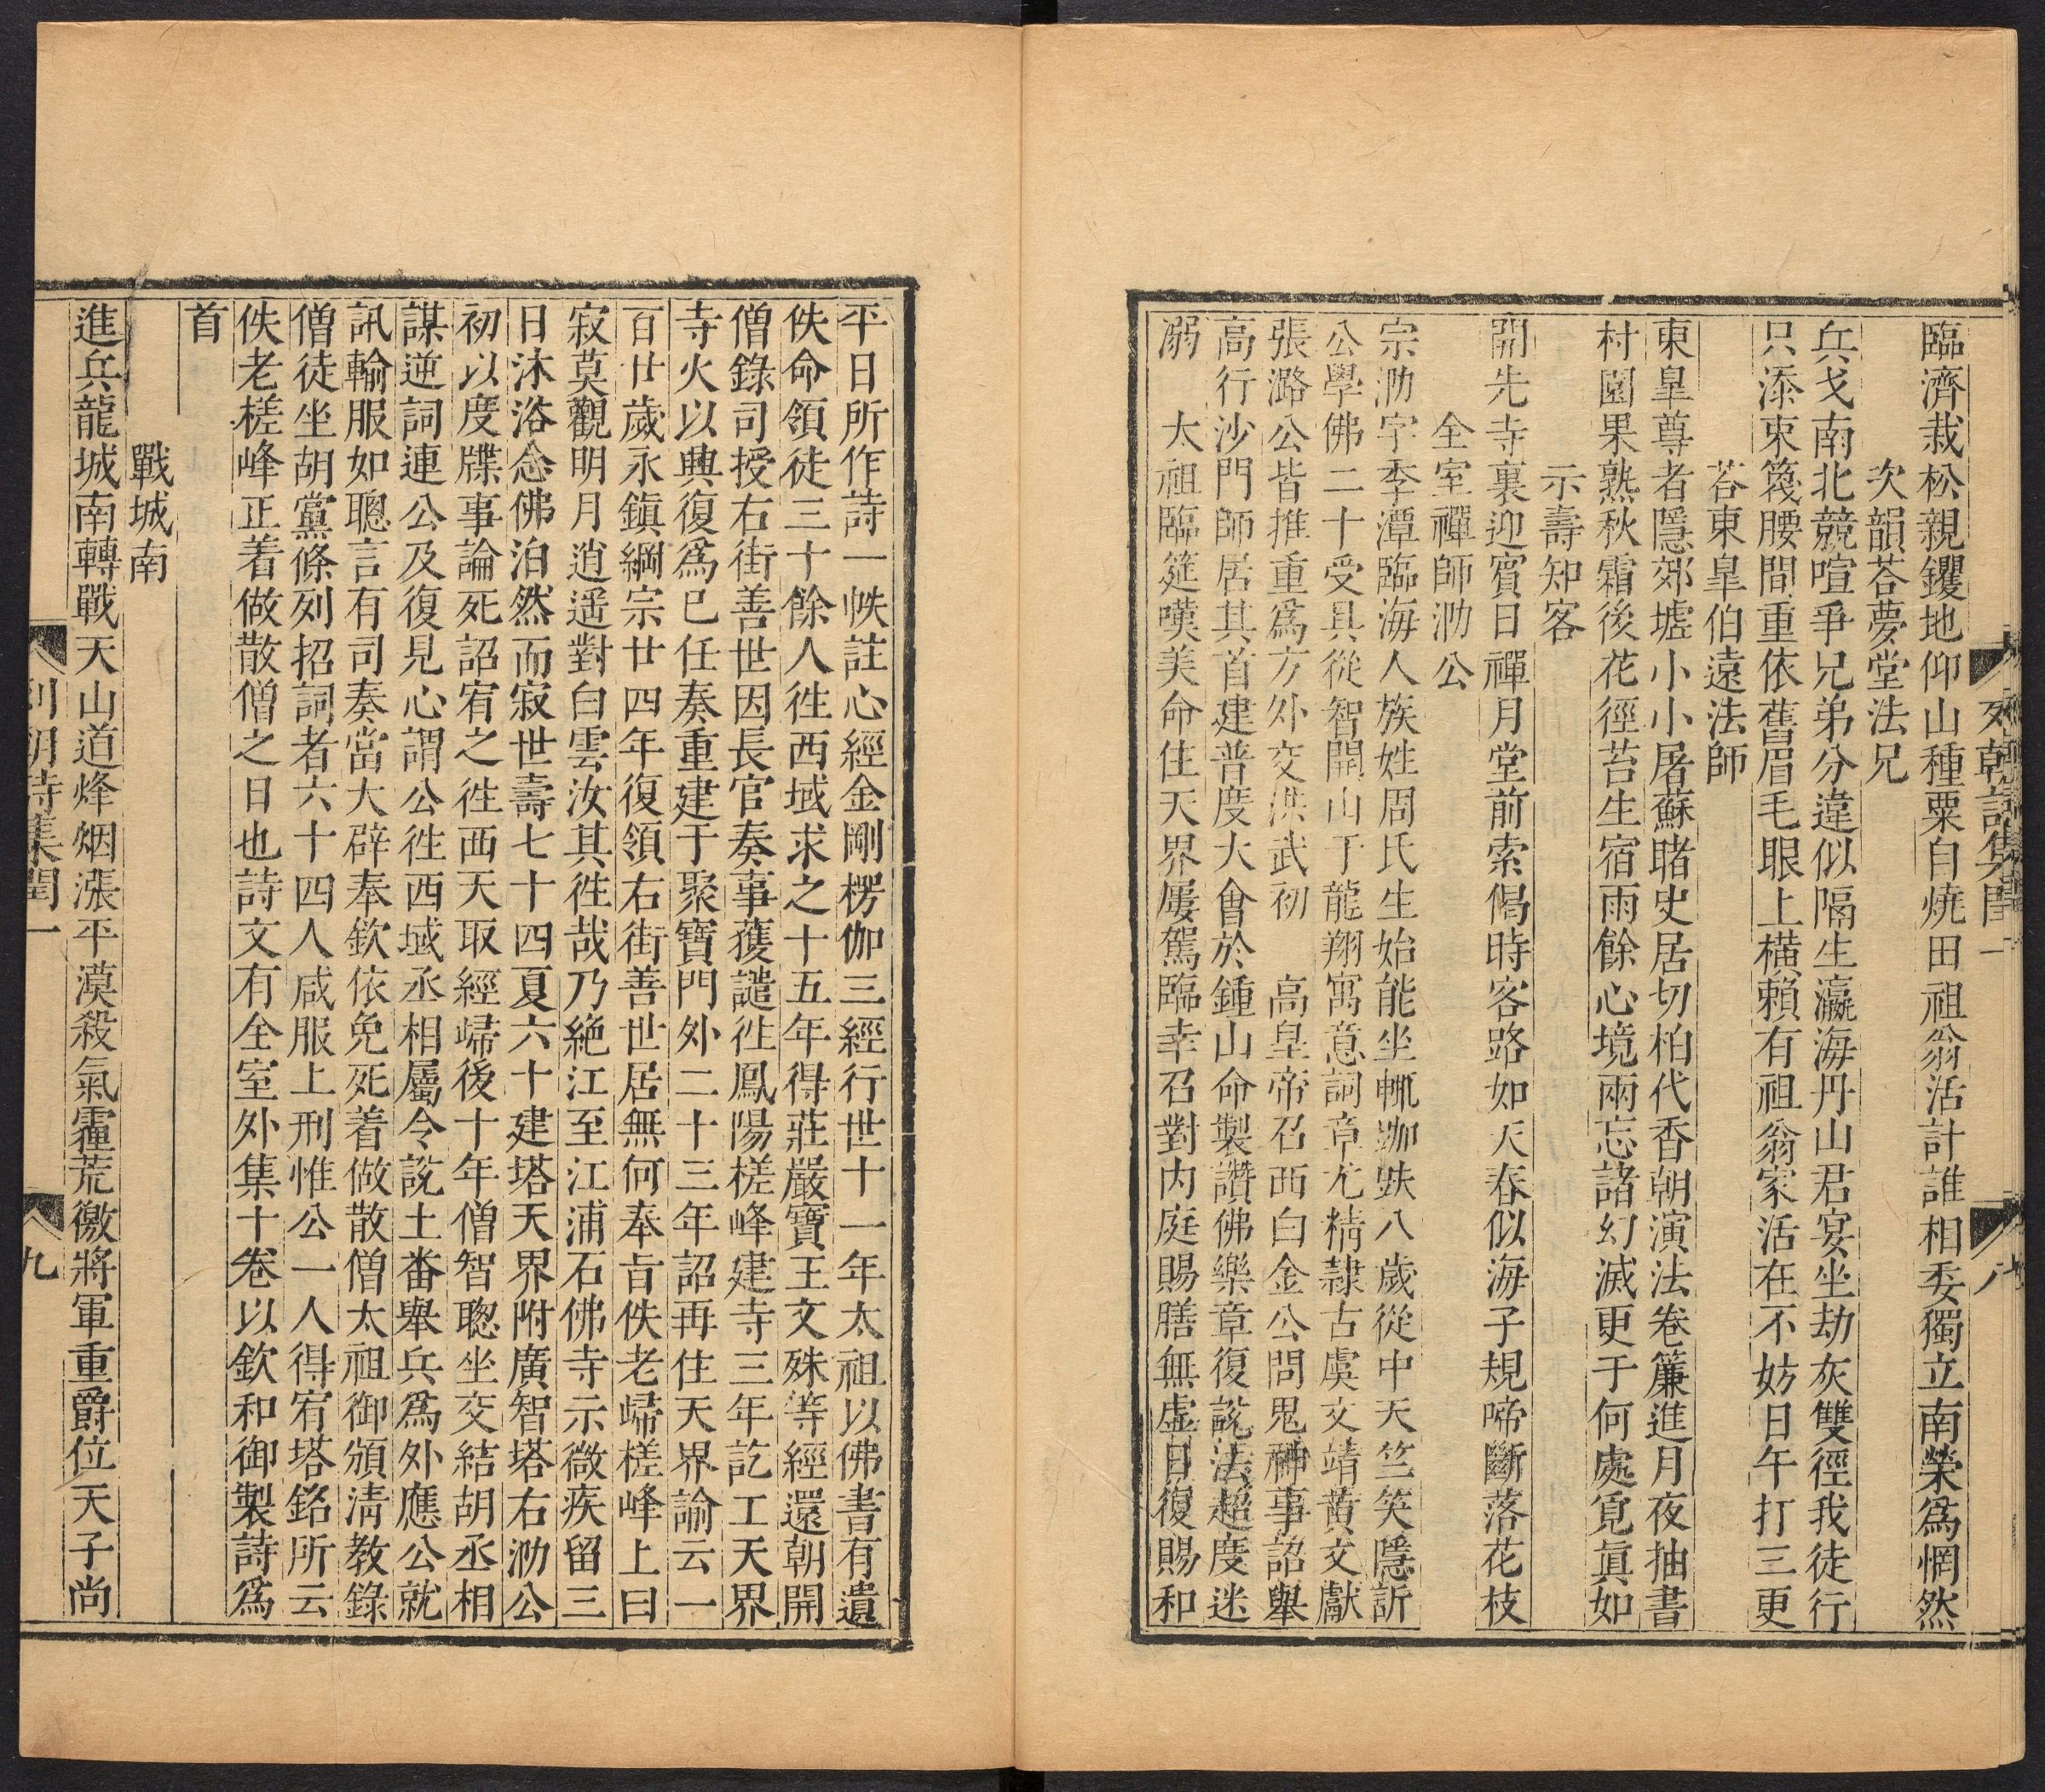 列朝詩集閏一
八
臨濟栽松親钁地仰山種粟自燒田祖翁活計誰相委獨立南榮爲惘然
次韻荅夢堂法兄
兵戈南北競喧爭兄弟分違似隔生瀛海丹山君宴坐劫灰雙徑我徒行
只添束篾腰間重依舊眉毛眼上橫賴有祖翁家活在不妨日午打三更
荅東臯伯遠法師
東臯尊者隱郊墟小小屠蘇睹史居切柏代香朝演法卷簾進月夜抽書
村園果熟秋霜後花徑苔生宿雨餘心境兩忘諸幻滅更于何處覓眞如
示壽知客
開先寺裏迎賓日禪月堂前索偈時客路如天春似海子規啼斷落花枝
全室禪師泐公
宗泐字季潭臨海人族姓周氏生始能坐輒跏趺八歲從中天竺笑隱訢
公學佛二十受具從智開山于龍翔寓意詞章尤精隷古虞文靖黃文獻
張潞公皆推重爲方外交洪武初　高皇帝召西白金公問鬼神事詔舉
高行沙門師居其首建普度大會於鍾山命製讚佛樂章復說法超度迷
溺　太祖臨筵嘆美命住天界屢駕臨幸召對内庭賜膳無虚日復賜和
平日所作詩一帙註心經金剛楞伽三經行世十一年太祖以佛書有遺
佚命領徒三十餘人徃西域求之十五年得莊嚴寶王文殊等經還朝開
僧錄司授右街善世因長官奏事獲譴徃鳳陽槎峰建寺三年訖工天界
寺火以興復爲已任奏重建于聚寶門外二十三年詔再住天界諭云一
百廿歲永鎮綱宗廿四年復領右街善世居無何奉旨佚老歸槎峰上曰
寂莫觀明月逍遥對白雲汝其徃哉乃絶江至江浦石佛寺示微疾留三
日沐浴念佛泊然而寂世壽七十四夏六十建塔天界附廣智塔右泐公
初以度牒事論死詔宥之徃西天取經歸後十年僧智聰坐交結胡丞相
謀逆詞連公及復見心謂公徃西域丞相屬令說土番舉兵爲外應公就
訊輸服如聰言有司奏當大辟奉欽依免死着做散僧太祖御頒清教錄
僧徒坐胡黨條列招詞者六十四人咸服上刑惟公一人得宥塔銘所云
佚老槎峰正着做散僧之日也詩文有全室外集十卷以欽和御製詩爲
首
戰城南
進兵龍城南轉戰天山道烽烟漲平漠殺氣霾荒徼將軍重爵位天子尚
列朝詩集閏一
九